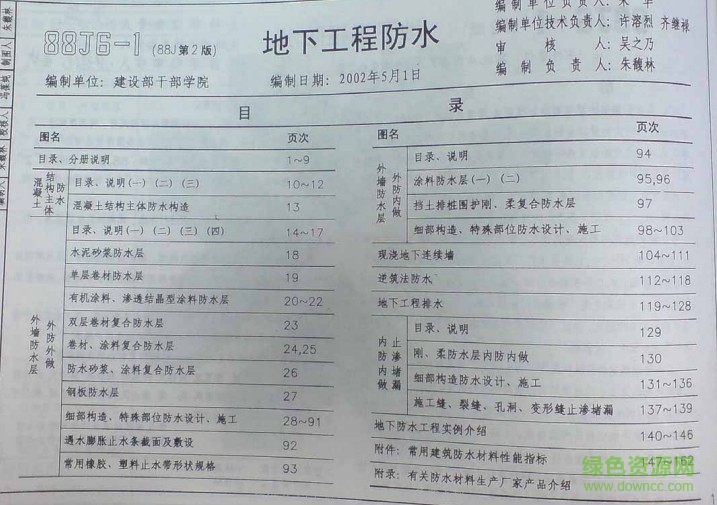 88J6-1 (88J第2版)
地下工程防水
编制单位负责人 朱 华
编制单位技术负责人 许溶烈 齐继禄
审核人 吴之乃
编制负责人 朱馥林
编制单位: 建设部干部学院
编制日期: 2002年5月1日
目 录
图名 页次
目录、分册说明 1~9
混凝土结构主体防水
目录、说明(一)(二)(三) 10~12
混凝土结构主体防水构造 13
外墙防水层 外防外做
目录、说明(一)(二)(三)(四) 14~17
水泥砂浆防水层 18
单层卷材防水层 19
有机涂料、渗透结晶型涂料防水层 20~22
双层卷材复合防水层 23
卷材、涂料复合防水层 24,25
防水砂浆、涂料复合防水层 26
钢板防水层 27
细部构造、特殊部位防水设计、施工 28~91
遇水膨胀止水条截面及敷设 92
常用橡胶、塑料止水带形状规格 93
图名 页次
外墙防水层 外防内做
目录、说明 94
涂料防水层(一)(二) 95,96
挡土排桩围护刚、柔复合防水层 97
细部构造、特殊部位防水设计、施工 98~103
现浇地下连续墙 104~111
逆筑法防水 112~118
地下工程排水 119~128
内防内做 止渗堵漏
目录、说明 129
刚、柔防水层内防内做 130
细部构造防水设计、施工 131~136
施工缝、裂缝、孔洞、变形缝止渗堵漏 137~139
地下防水工程实例介绍 140~146
附件: 常用建筑防水材料性能指标 147~162
附录: 有关防水材料生产厂家产品介绍
绿色资源网
www.downcc.com